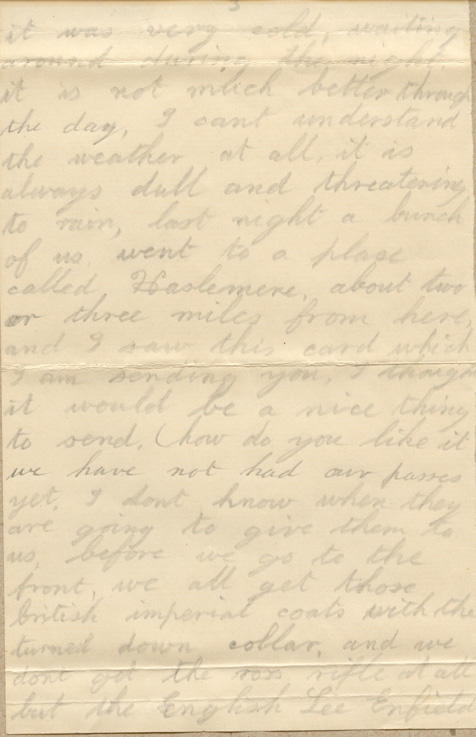 3
it was very cold, waiting
around during the night,
it is not much better through
the day, I cant understand
the weather at all, it is
always dull and threatening
to rain, last night a bunch
of us went to a place
called Haslemere, about two
or three miles from here
and I saw this card which
I am sending you, I though
it would be a nice thing
to send, (how do you like it
we have not had our passes
yet, I dont know when they
are going to give them to
us, before we go to the
front, we all get those
British imperial coats with the
turned down collar, and we
dont get the ross rifle at all
but the English Lee Enfield